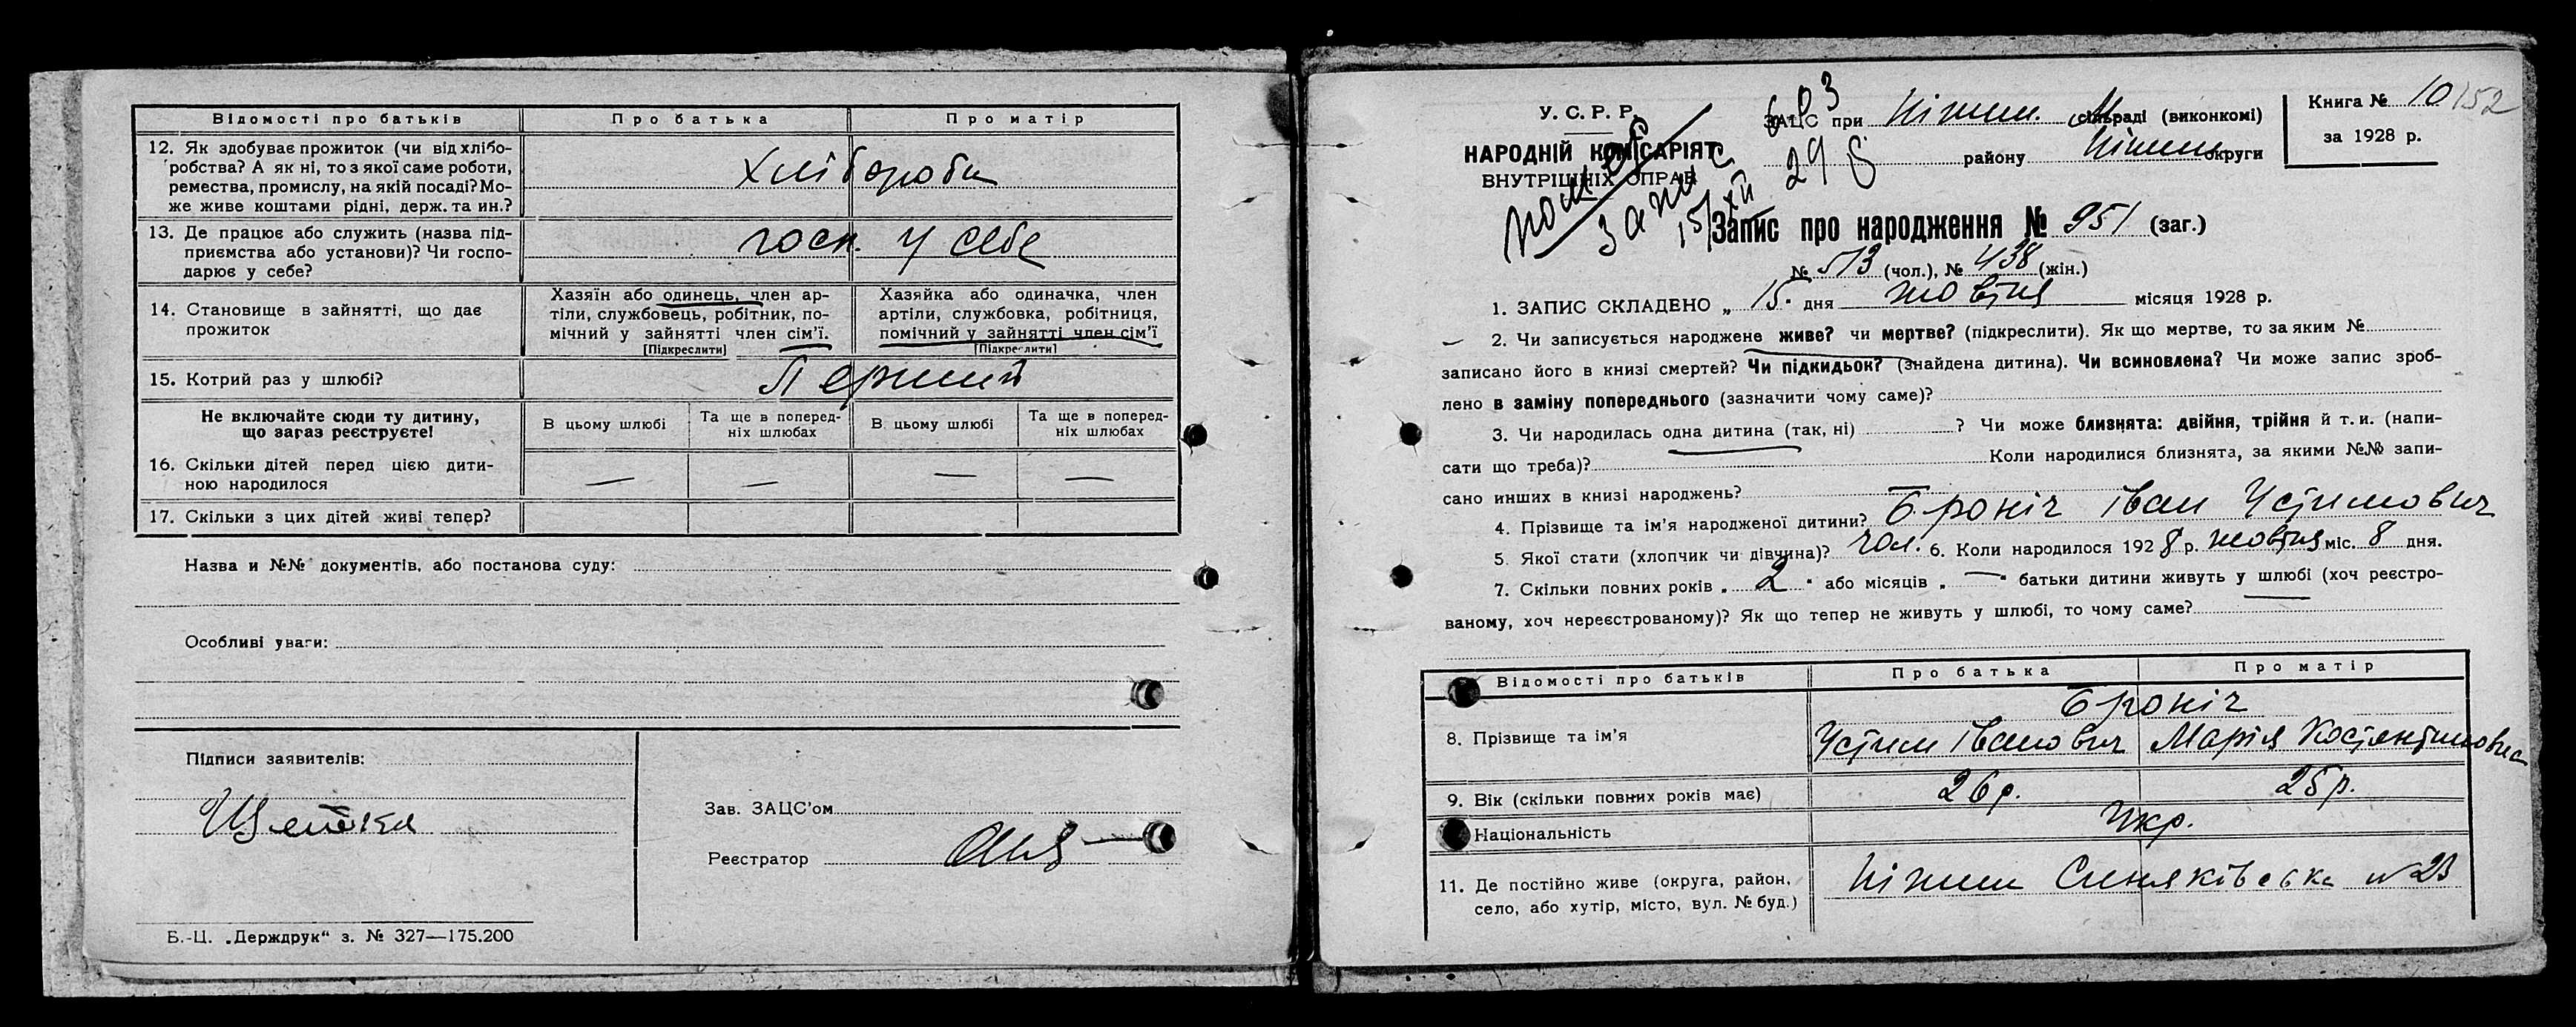 Відомості про батьків
Про батька
Про матір
12. Як здобуває прожиток (чи від хлібо-
робства? А як ні, то з якої саме роботи,
ремества, промислу, на якій посаді? Мо-
же живе коштами рідні, держ. та ин.?
Хлібороби
13. Де працює або служить (назва під-
приємства або установи)? Чи госпо-
дарює у себе?
госп. у себе
14. Становище в зайнятті, що дає
прожиток
Хазяїн або одинець, член ар-
тіли, службовець, робітник, по-
мічний у зайнятті член сім'ї.
[Підкреслити]
Хазяйка або одиначка, член
артіли, службовка, робітниця,
помічний у зайнятті член сім'ї
[Підкреслити]
15. Котрий раз у шлюбі?
Перший
Не включайте сюди ту дитину,
що загаз реєструєте!
В цьому шлюбі
Та ще в поперед-
ніх шлюбах
В цьому шлюбі
Та ще в поперед-
ніх шлюбах
16. Скільки дітей перед цією дити-
ною народилося
— — — —
17. Скільки з цих дітей живі тепер?
Назва и №№ документів, або постанова суду:
Особливі уваги:
Підписи заявителів:
Зав. ЗАЦС'ом
Реєстратор
Б.-Ц. „Держдрук“ з. № 327—175.200
У. С. Р. Р.
НАРОДНІЙ КОМІСАРІЯТ
ВНУТРІШНІХ СПРАВ
запис
15/XII 29
ЗАЦС при Ніжин. М сільраді (виконкомі)
району Ніжин округи
Книга № 10 152
за 1928 р.
Запис про народження № 951 (заг.)
№ 513 (чол.), № 438 (жін.)
1. ЗАПИС СКЛАДЕНО „ 15 дня жовтня місяця 1928 р.
2. Чи записується народжене живе? чи мертве? (підкреслити). Як що мертве, то за яким №
записано його в книзі смертей? Чи підкидьок? (знайдена дитина). Чи всиновлена? Чи може запис зроб-
лено в заміну попереднього (зазначити чому саме)?
3. Чи народилась одна дитина (так, ні) ? Чи може близнята: двійня, трійня й т. и. (напи-
сати що треба)? Коли народилися близнята, за якими №№ запи-
сано инших в книзі народжень?
4. Прізвище та ім'я народженої дитини? Броніч Іван Устимович
5. Якої стати (хлопчик чи дівчина)? чол. 6. Коли народилося 1928 р. жовтня міс. 8 дня.
7. Скільки повних років „ 2 " або місяців „ — " батьки дитини живуть у шлюбі (хоч реєстро-
ваному, хоч нереєстрованому)? Як що тепер не живуть у шлюбі, то чому саме?
Відомості про батьків
Про батька
Про матір
8. Прізвище та ім'я
Броніч
Устим Іванович
Марія Костянтиновна
9. Вік (скільки повних років має)
26 р.
25 р.
Національність
Укр.
11. Де постійно живе (округа, район,
село, або хутір, місто, вул. № буд.)
Ніжин Синяківська № 23